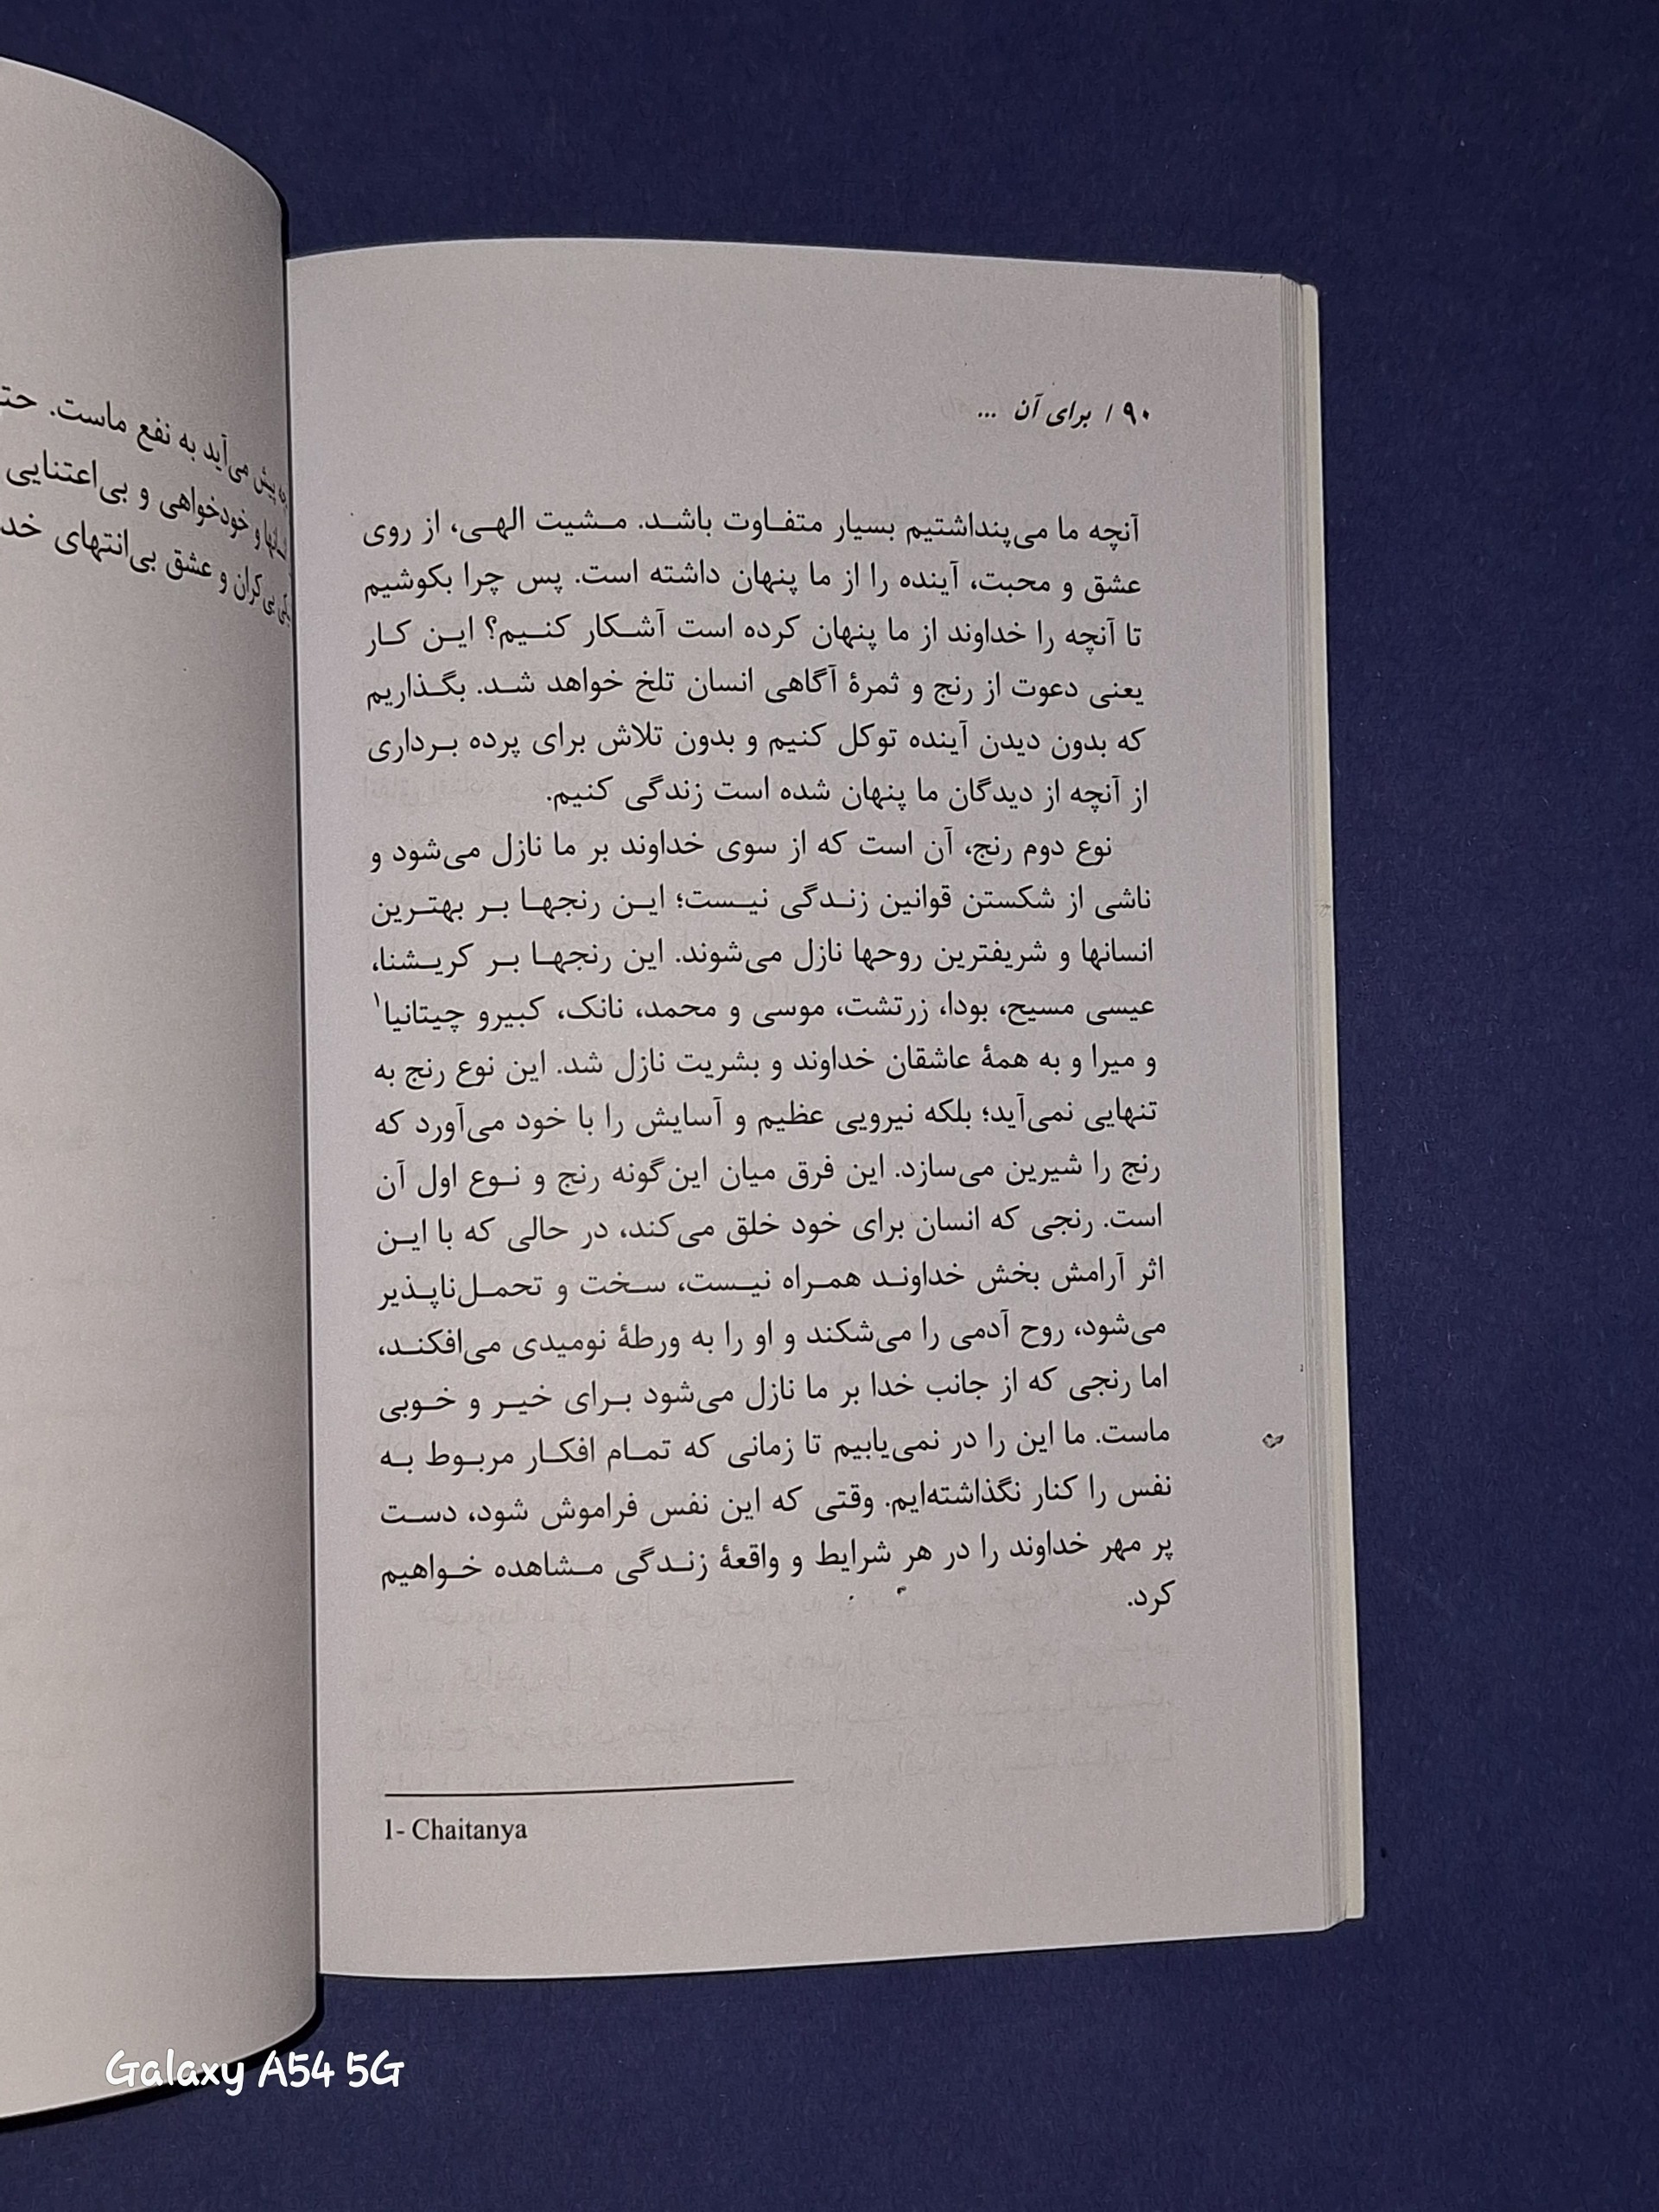 ۹۰ / برای آن ...
آنچه ما می‌پنداشتیم بسیار متفاوت باشد. مشیت الهی، از روی
عشق و محبت، آینده را از ما پنهان داشته است. پس چرا بکوشیم
تا آنچه را خداوند از ما پنهان کرده است آشکار کنیم؟ این کار
یعنی دعوت از رنج و ثمرهٔ آگاهی انسان تلخ خواهد شد. بگذاریم
که بدون دیدن آینده توکل کنیم و بدون تلاش برای پرده برداری
از آنچه از دیدگان ما پنهان شده است زندگی کنیم.
نوع دوم رنج، آن است که از سوی خداوند بر ما نازل می‌شود و
ناشی از شکستن قوانین زندگی نیست؛ این رنجها بر بهترین
انسانها و شریفترین روحها نازل می‌شوند. این رنجها بر کریشنا،
عیسی مسیح، بودا، زرتشت، موسی و محمد، نانک، کبیرو چیتانیا۱
و میرا و به همهٔ عاشقان خداوند و بشریت نازل شد. این نوع رنج به
تنهایی نمی‌آید؛ بلکه نیرویی عظیم و آسایش را با خود می‌آورد که
رنج را شیرین می‌سازد. این فرق میان این‌گونه رنج و نوع اول آن
است. رنجی که انسان برای خود خلق می‌کند، در حالی که با این
اثر آرامش بخش خداوند همراه نیست، سخت و تحمل‌ناپذیر
می‌شود، روح آدمی را می‌شکند و او را به ورطهٔ نومیدی می‌افکند،
اما رنجی که از جانب خدا بر ما نازل می‌شود برای خیر و خوبی
ماست. ما این را در نمی‌یابیم تا زمانی که تمام افکار مربوط به
نفس را کنار نگذاشته‌ایم. وقتی که این نفس فراموش شود، دست
پر مهر خداوند را در هر شرایط و واقعهٔ زندگی مشاهده خواهیم
کرد.
1- Chaitanya
پیش می‌آید به نفع ماست.
و خودخواهی و بی‌اعتنایی
بی‌کران و عشق بی‌انتهای
Galaxy A54 5G